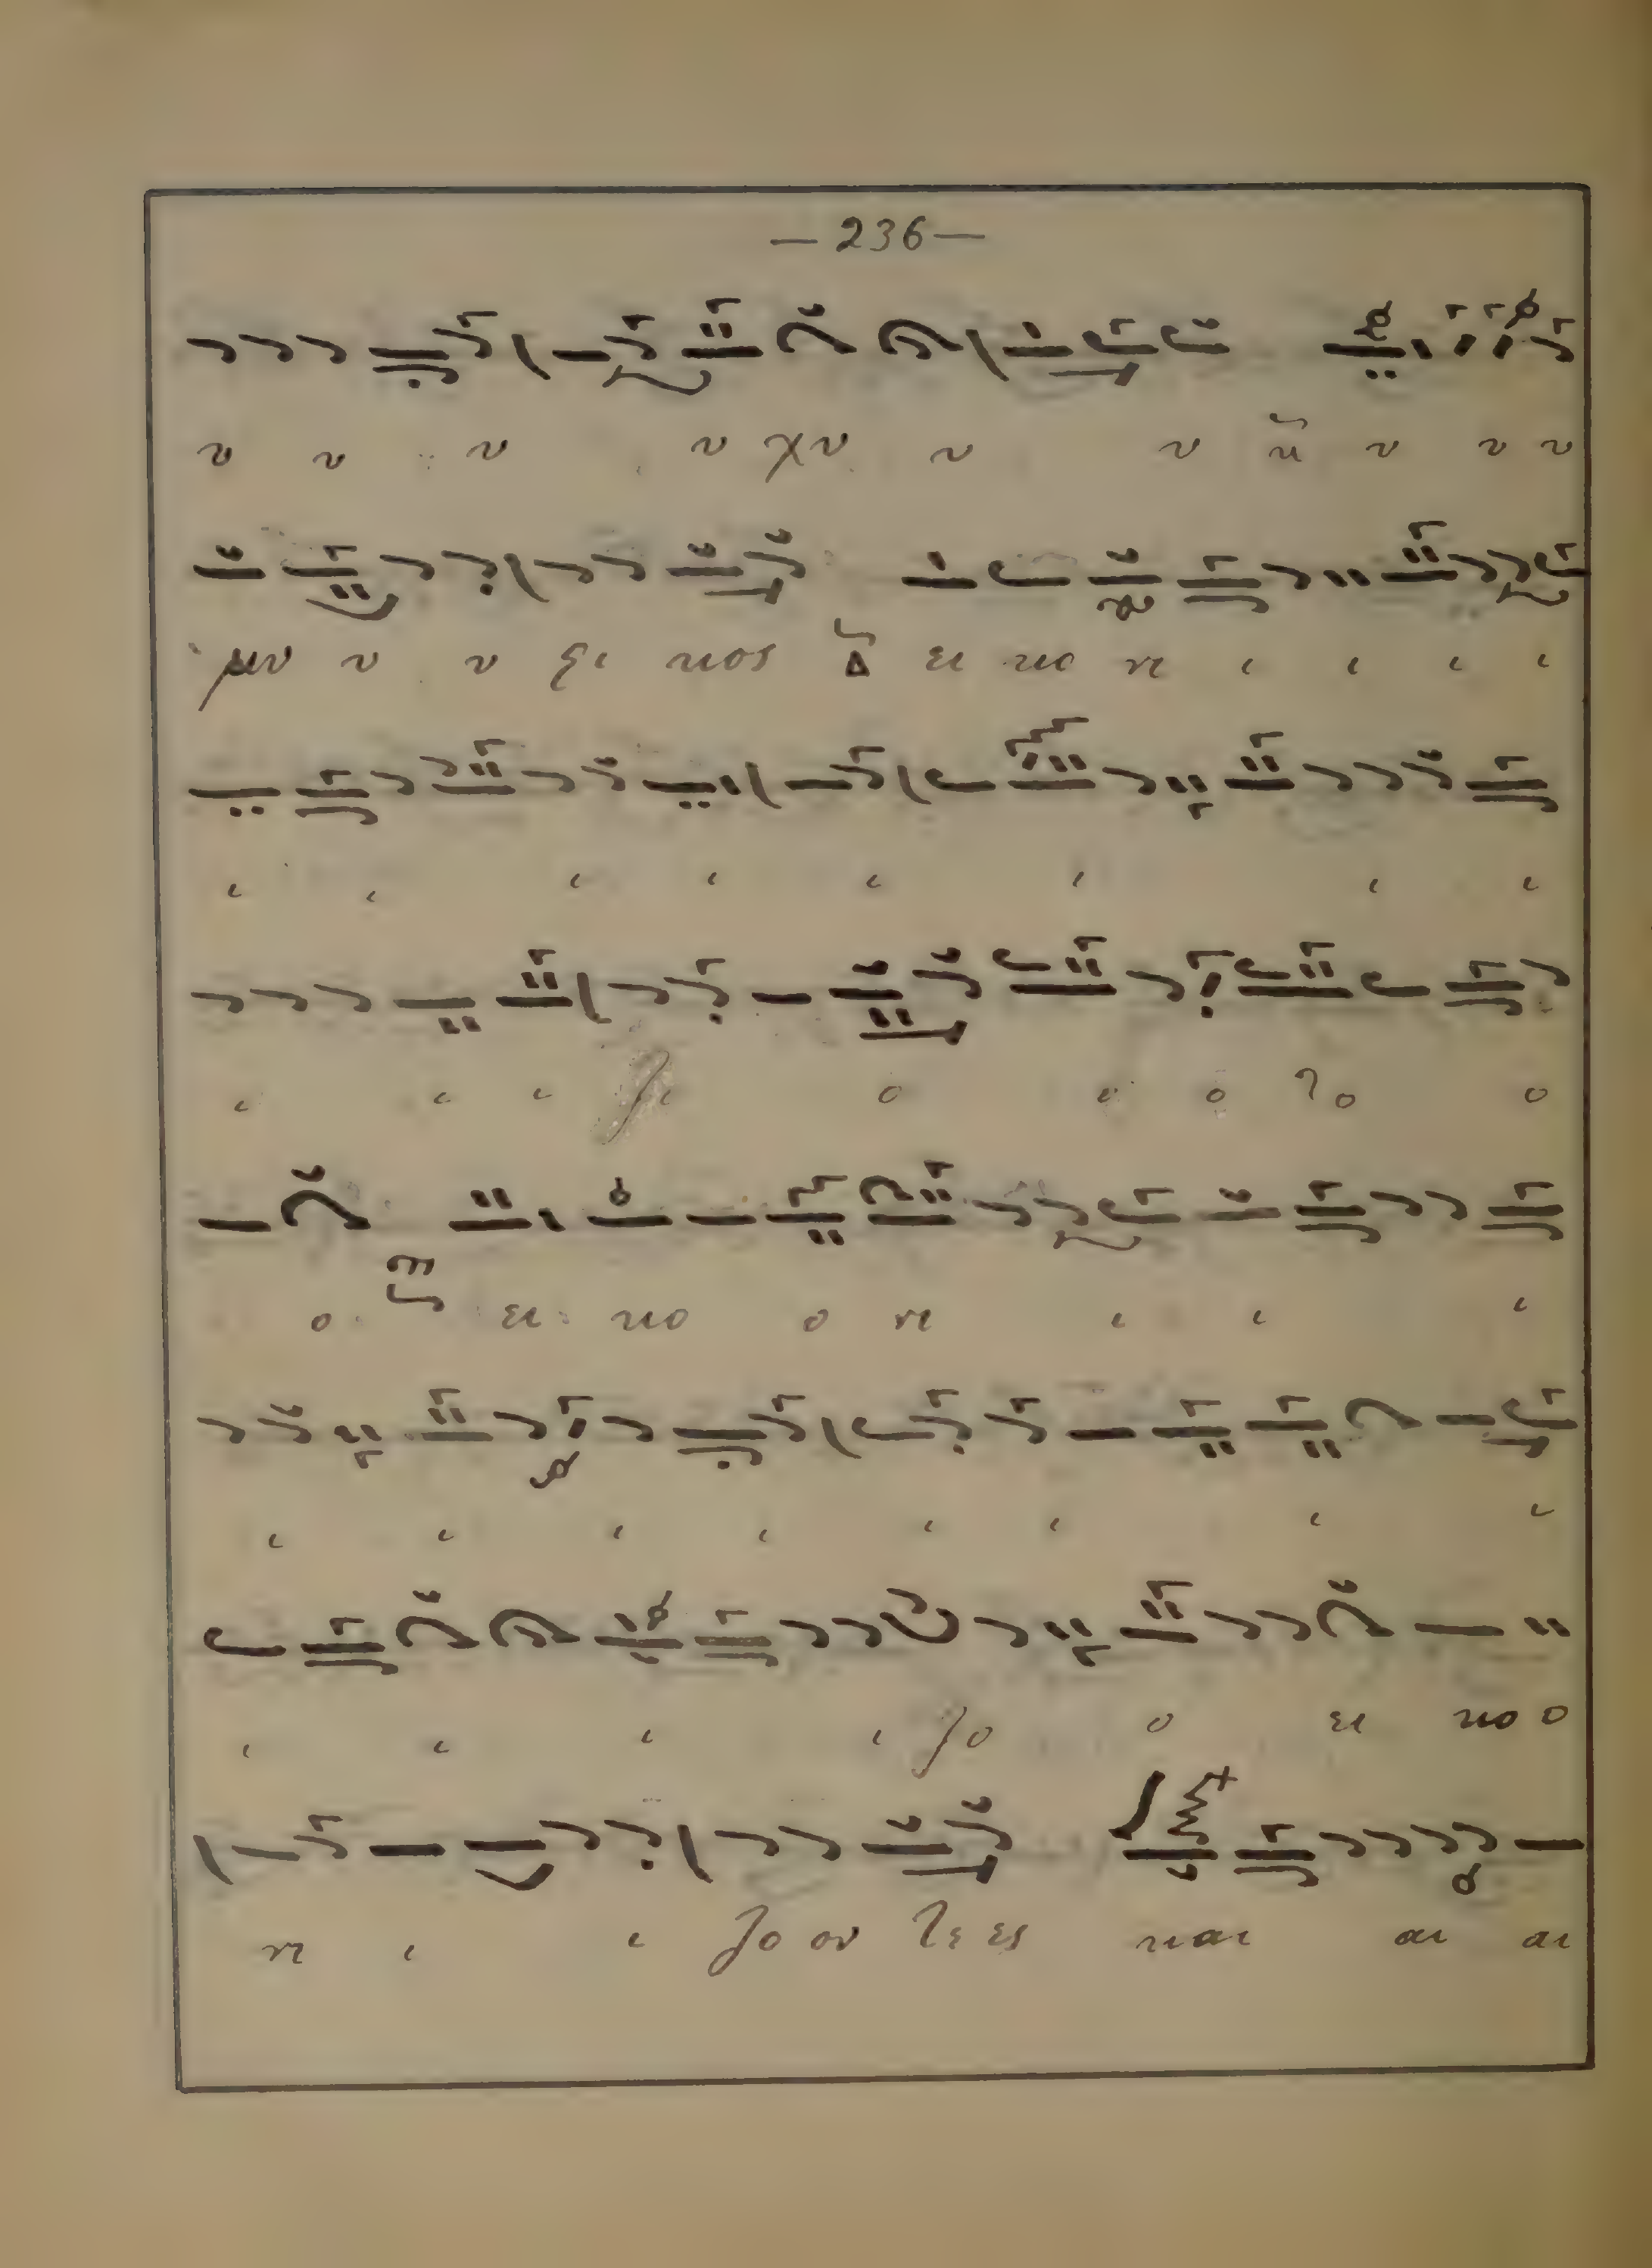 —236—
υ υ υ υ χυ υ υ υ υ υ
μυ υ υ ξι κος Δ ει κο νι ι ι ι ι
ι ι ι ι ι ι ι ι
ι ι ι ζι ο ο ο το ο
ο ει κο ο νι ι ι ι
ι ι ι ι ι ι ι ι
ι ι ι ι ζο ο ει κο ο
νι ι ι ζο ον τε ες και αι αι